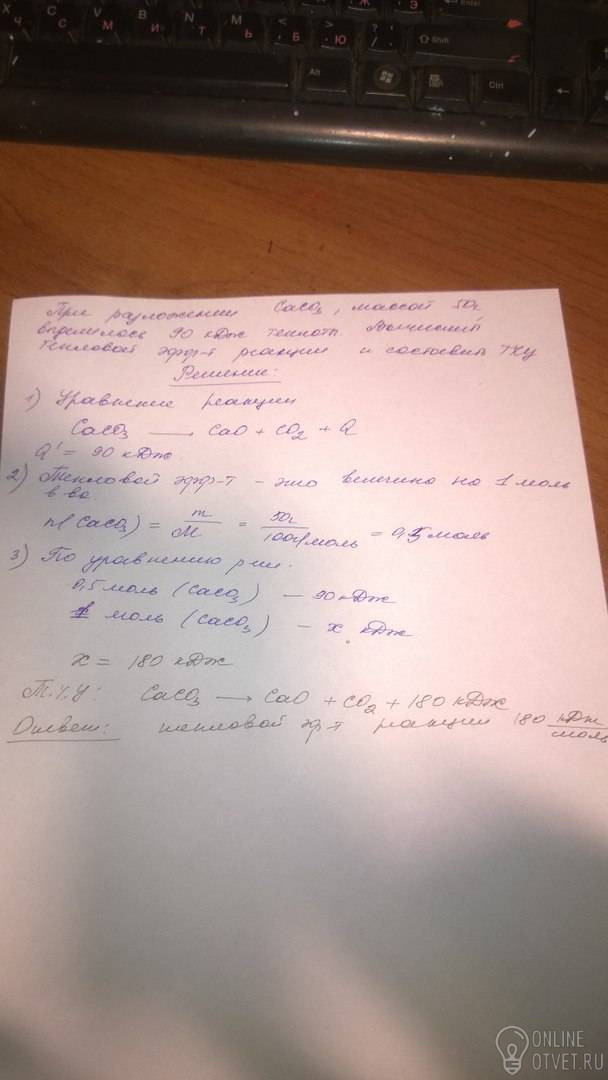 При разложении CaCO₃, массой 50г
выделилось 90 кДж теплоты. Вычислить
тепловой эфф-т реакции и составить ТХУ
Решение:
1) Уравнение реакции
CaCO₃ → CaO + CO₂ + Q
Q' = 90 кДж.
2) Тепловой эфф-т - это величина на 1 моль
в-ва.
n(CaCO₃) = m/M = 50г/100г/моль = 0,5 моль
3) По уравнению р-ии.
0,5 моль (CaCO₃) — 90 кДж
1 моль (CaCO₃) — x кДж
x = 180 кДж
Т.Х.У: CaCO₃ → CaO + CO₂ + 180 кДж
Ответ: тепловой эф-т реакции 180 кДж/моль
Shift
Alt
Ctrl
ONLINE
OTVET.RU